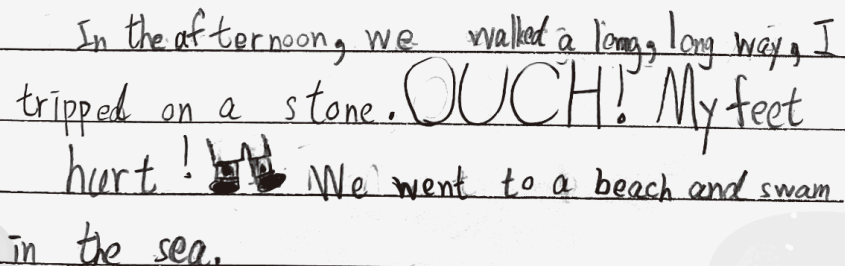 In the afternoon, we walked a long, long way, I
tripped on a stone. OUCH! My feet
hurt! We went to a beach and swam
in the sea.